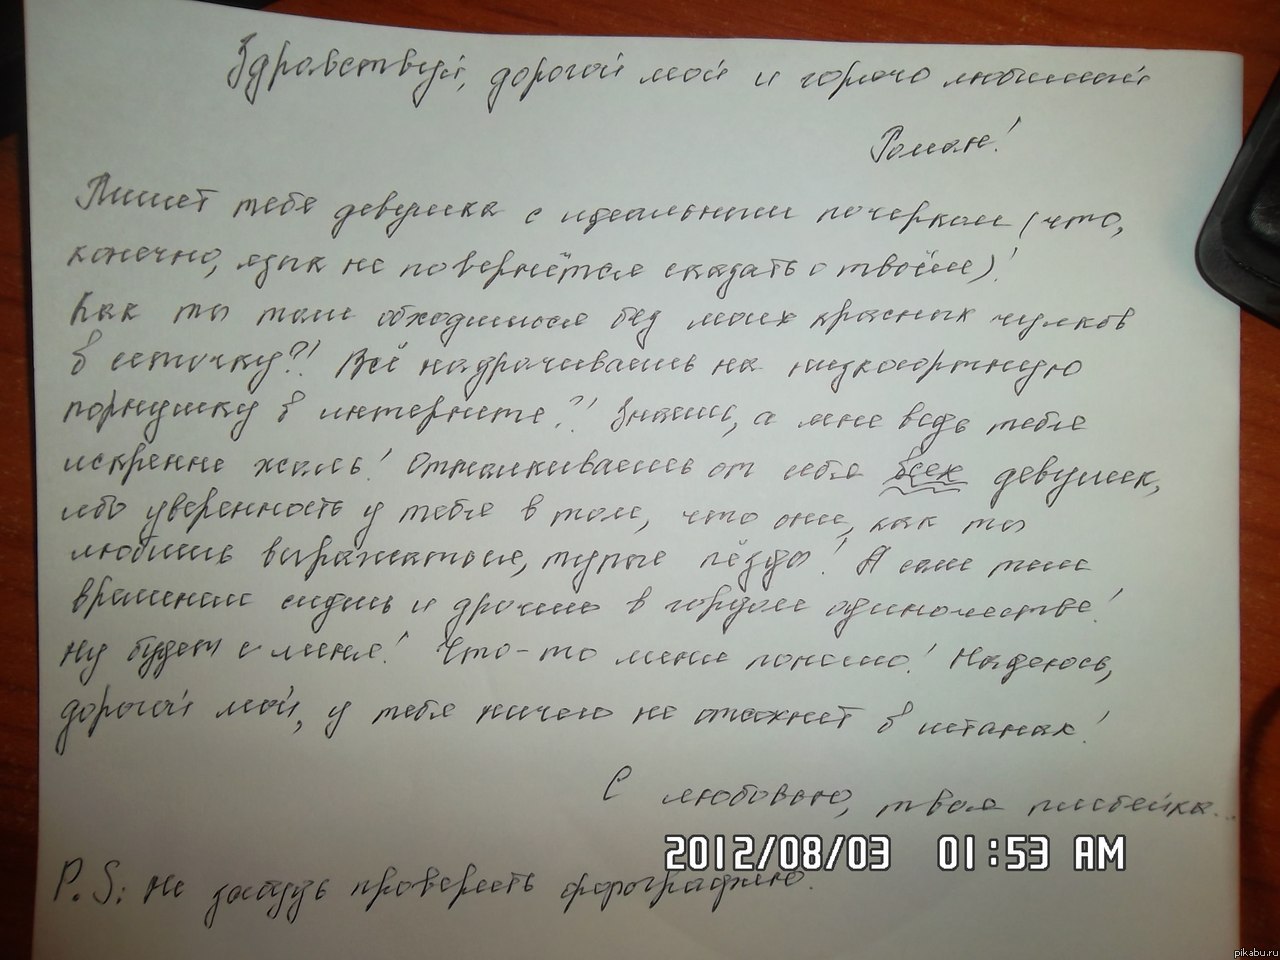 Здравствуй, дорогой мой и горячо любимый
Роман!
Пишет тебе девушка с идеальным почерком (что,
конечно, язык не повернётся сказать о твоём)!
Как ты там обходишься без моих красных чулков
в сеточку?! Всё надрачиваешь на низкосортную
порнушку в интернете?! Знаешь, а мне ведь тебя
искренне жаль! Отталкиваешь от себя всех девушек,
ибо уверенность у тебя в том, что они, как ты
любишь выражаться, тупые пёзды! А сам тем
временем сидишь и дрочишь в гордом одиночестве!
Ну будет с меня! Что-то меня понесло! Надеюсь,
дорогой мой, у тебя ничего не отсохнет в штанах!
С любовью, твоя плебейка...
2012/08/03 01:53 AM
P.S: Не забудь проверить орфографию.
pikabu.ru